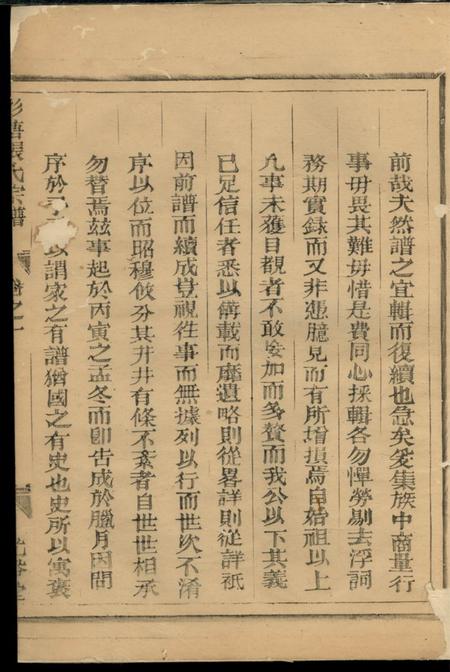 前哉夫然譜之宜輯而復續也急矣爰集族中商量行
事毋畏其難毋惜是費同心採輯各勿憚勞剔去浮詞
務期實録而又非憑臆見而有所增損焉自始祖以上
凡事未獲目覩者不敢妄加而多贅而我公以下其義
已足信任者悉以備載而靡遺略則從畧詳則從詳祇
因前譜而續成豈視徃事而無據列以行而世次不淆
序以位而昭穆攸分其井井有條不紊者自世世相承
勿替焉兹事起於丙寅之孟冬而即告成於臘月因問
序於以謂家之有譜猶國之有史也史所以寓褒
張氏宗譜